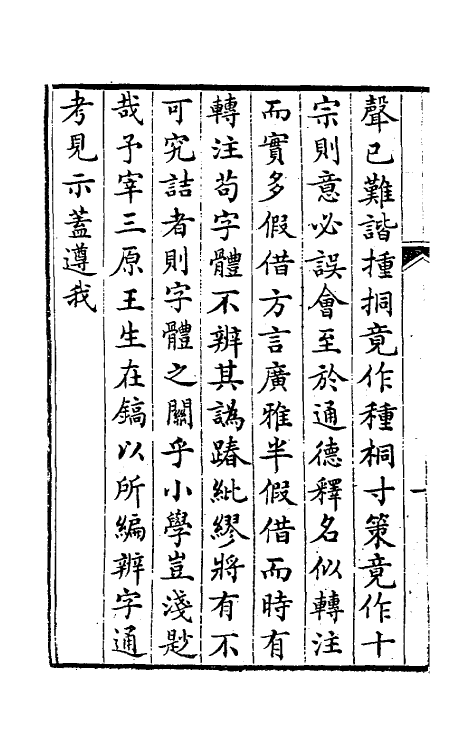 聲已難諧揰挏竟作種桐寸策竟作十
宗則意必誤會至於通德釋名似轉注
而實多假借方言廣雅半假借而時有
轉注苟字體不辨其譌踳紕繆將有不
可究詰者則字體之關乎小學豈淺尟
哉予宰三原王生在鎬以所編辨字通
考見示蓋遵我
一